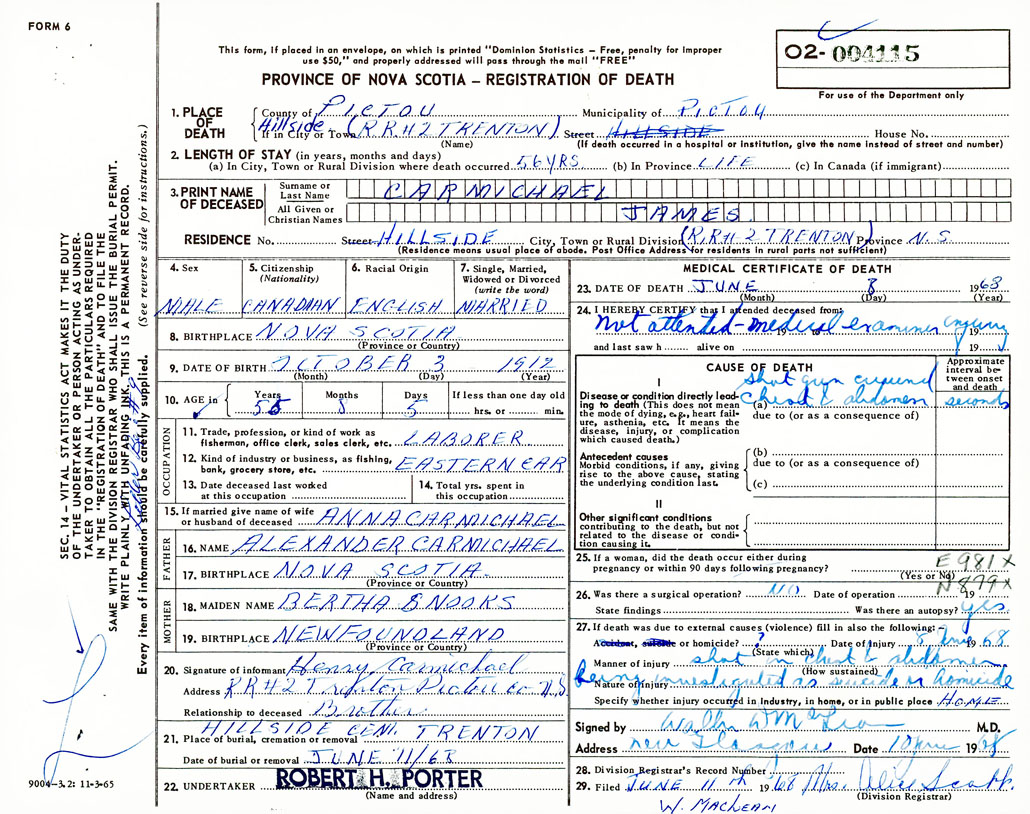 FORM 6
O2- 004115
This form, if placed in an envelope, on which is printed "Dominion Statistics – Free, penalty for improper
use $50," and properly addressed will pass through the mail "FREE"
PROVINCE OF NOVA SCOTIA – REGISTRATION OF DEATH
For use of the Department only
1. PLACE OF DEATH County of PICTOU Municipality of PICTOU
Hillside If in City or Town (R.R.#2 TRENTON) Street HILLSIDE House No.
(Name) (If death occurred in a hospital or institution, give the name instead of street and number)
2. LENGTH OF STAY (in years, months and days)
(a) In City, Town or Rural Division where death occurred 56 YRS (b) In Province LIFE (c) In Canada (if immigrant)
3. PRINT NAME OF DECEASED Surname or Last Name CARMICHAEL
All Given or Christian Names JAMES
RESIDENCE No. Street HILLSIDE City, Town or Rural Division (R.R#2 TRENTON) Province N.S.
(Residence means usual place of abode. Post Office Address for residents in rural parts not sufficient)
SEC. 14 – VITAL STATISTICS ACT MAKES IT THE DUTY
OF THE UNDERTAKER OR PERSON ACTING AS UNDER-
TAKER TO OBTAIN ALL THE PARTICULARS REQUIRED
IN THE "REGISTRATION OF DEATH" AND TO FILE THE
SAME WITH THE DIVISION REGISTRAR WHO SHALL ISSUE THE BURIAL PERMIT.
WRITE PLAINLY WITH UNFADING INK. THIS IS A PERMANENT RECORD.
Every item of information should be carefully supplied. (See reverse side for instructions.)
4. Sex MALE
5. Citizenship (Nationality) CANADIAN
6. Racial Origin ENGLISH
7. Single, Married, Widowed or Divorced (write the word) MARRIED
8. BIRTHPLACE NOVA SCOTIA
(Province or Country)
9. DATE OF BIRTH OCTOBER 3 1912
(Month) (Day) (Year)
10. AGE in Years 55 Months 8 Days 5 If less than one day old hrs. or min.
OCCUPATION
11. Trade, profession, or kind of work as
fishermon, office clerk, sales clerk, etc. LABORER
12. Kind of industry or business, as fishing,
bank, grocery store, etc. EASTERN CAR
13. Date deceased last worked
at this occupation
14. Total yrs. spent in
this occupation
15. If married give name of wife
or husband of deceased ANNA CARMICHAEL
FATHER
16. NAME ALEXANDER CARMICHAEL
17. BIRTHPLACE NOVA SCOTIA
(Province or Country)
MOTHER
18. MAIDEN NAME BERTHA SNOOKS
19. BIRTHPLACE NEWFOUNDLAND
(Province or Country)
20. Signature of informant Henry Carmichael
Address RR#2 Trenton Pictou Co N.S
Relationship to deceased Brother
21. Place of burial, cremation or removal HILLSIDE CEM. TRENTON
Date of burial or removal JUNE 11/68
22. UNDERTAKER ROBERT H. PORTER
(Name and address)
9004–3.2: 11-3-65
MEDICAL CERTIFICATE OF DEATH
23. DATE OF DEATH JUNE 8 1968
(Month) (Day) (Year)
24. I HEREBY CERTIFY that I attended deceased from:
Not attended – medical examiner inquiry 19
and last saw h alive on 19
CAUSE OF DEATH
Approximate interval between onset and death
I
Disease or condition directly lead-
ing to death (This does not mean
the mode of dying, e.g., heart fail-
ure, asthenia, etc. It means the
disease, injury, or complication
which caused death.)
shot gun
(a) chest & abdomen seconds
due to (or as a consequence of)
Antecedent causes
Morbid conditions, if any, giving
rise to the above cause, stating
the underlying condition last.
(b)
due to (or as a consequence of)
(c)
II
Other significant conditions
contributing to the death, but not
related to the disease or condi-
tion causing it.
25. If a woman, did the death occur either during
pregnancy or within 90 days following pregnancy?
(Yes or No)
E981X
N879X
26. Was there a surgical operation? NO Date of operation 19
State findings Was there an autopsy? yes
27. If death was due to external causes (violence) fill in also the following:–
Accident, suicide or homicide? ? Date of injury 8 June 1968
(State which)
Manner of injury shot in chest & abdomen
(How sustained)
Nature of injury being investigated as suicide or homicide
Specify whether injury occurred in industry, in home, or in public place HOME
Signed by M.D.
Address New Glasgow Date 10 June 1968
28. Division Registrar's Record Number
29. Filed JUNE 11th 1968 Mrs. Scott
(Division Registrar)
W. MacLean